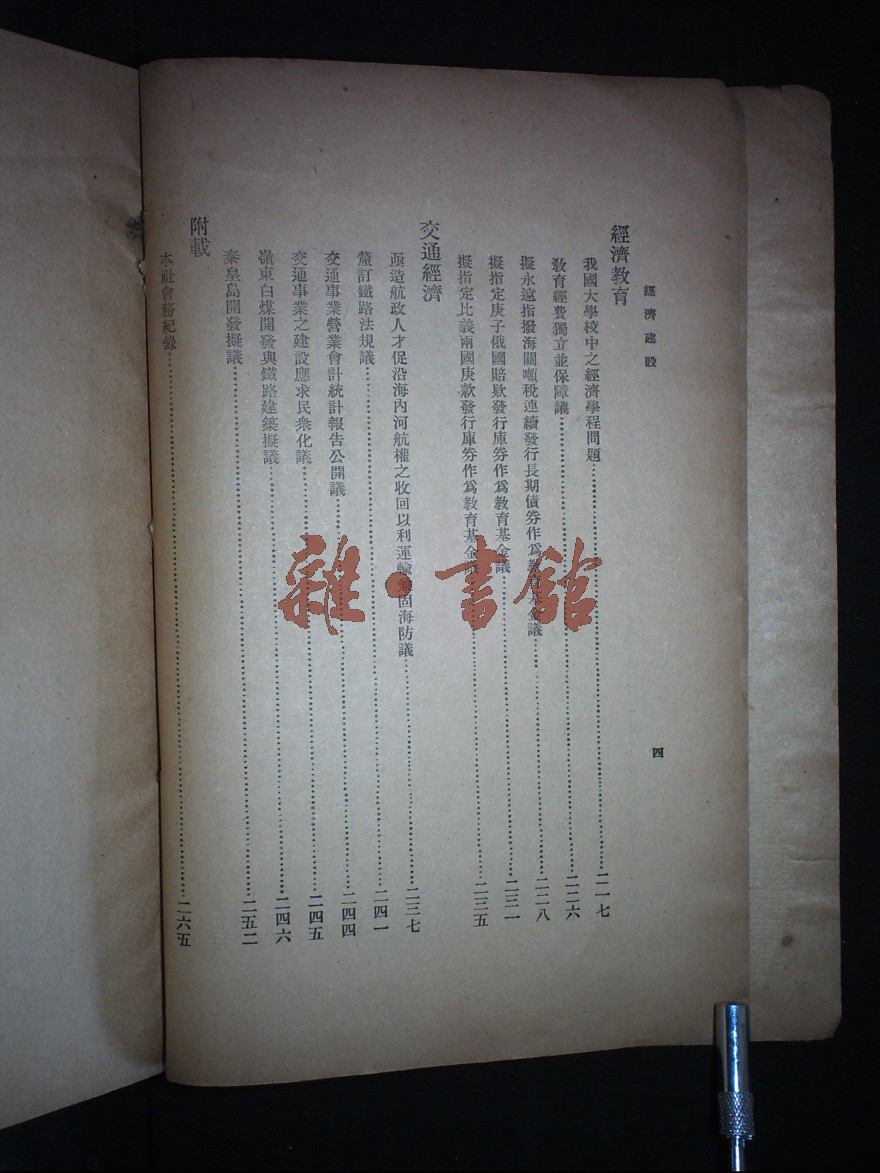 經濟建設
四
經濟教育
我國大學校中之經濟學程問題……二一七
教育經費獨立並保障議……二二六
擬永遠指撥海關噸稅連續發行長期債券作爲教育基金議……二二八
擬指定庚子俄國賠款發行庫券作爲教育基金議……二三一
擬指定比義兩國庚款發行庫券作爲教育基金議……二三五
交通經濟
亟造航政人才促沿海內河航權之收回以利運輸兼固海防議……二三七
釐訂鐵路法規議……二四一
交通事業營業會計統計報告公開議……二四四
交通事業之建設應求民衆化議……二四五
嶺東白煤開發與鐵路建築擬議……二四六
秦皇島開發擬議……二五二
附載
本社會務紀錄……二六五
雜·書館